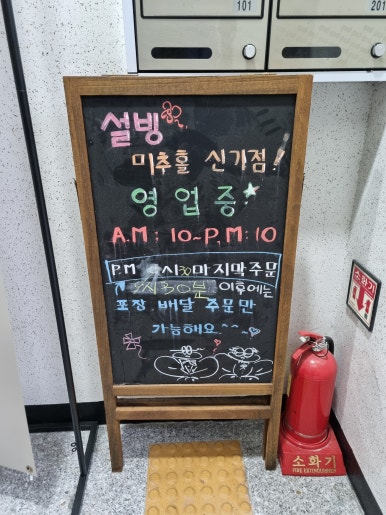 101
201
설빙
미추홀 신기점!
영업중
A.M : 10~P.M : 10
P.M 시30마지막주문
시30분 이후에는
포장 배달 주문만
가능해요^^
소화기
소화기
FIRE EXTINGUISHER